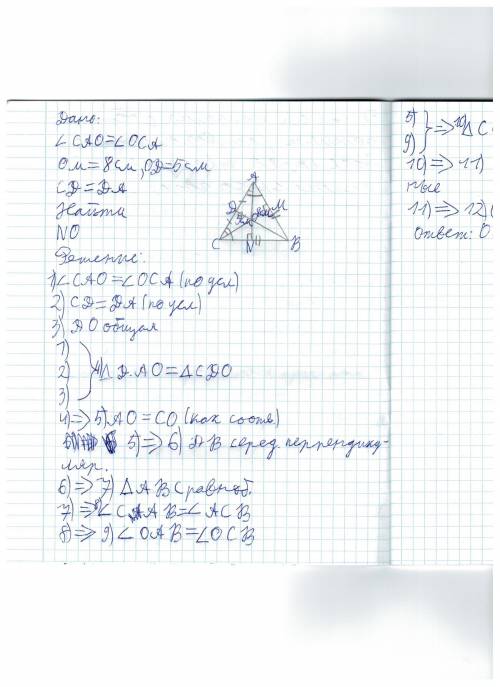 Дано:
∠CAO=∠OCA
OM=8см, OD=5см
CD=DA
Найти
NO
Решение:
1) ∠CAO=∠OCA (по усл)
2) CD=DA (по усл)
3) DO общая
1)
2) } 4) Δ DAO=ΔCDO
3)
4)=> 5) AO=CO (как соотв)
5)=> 6) DB серед. перпендику-
ляр.
6)=> 7) ΔABC равноб.
7)=> 8) ∠CAB=∠ACB
8)=> 9) ∠OAB=∠OCB
A
D
M
C
N
B
5)
9) } => 10) ΔC
10)=> 11)
ные
11)=> 12)
Ответ: O